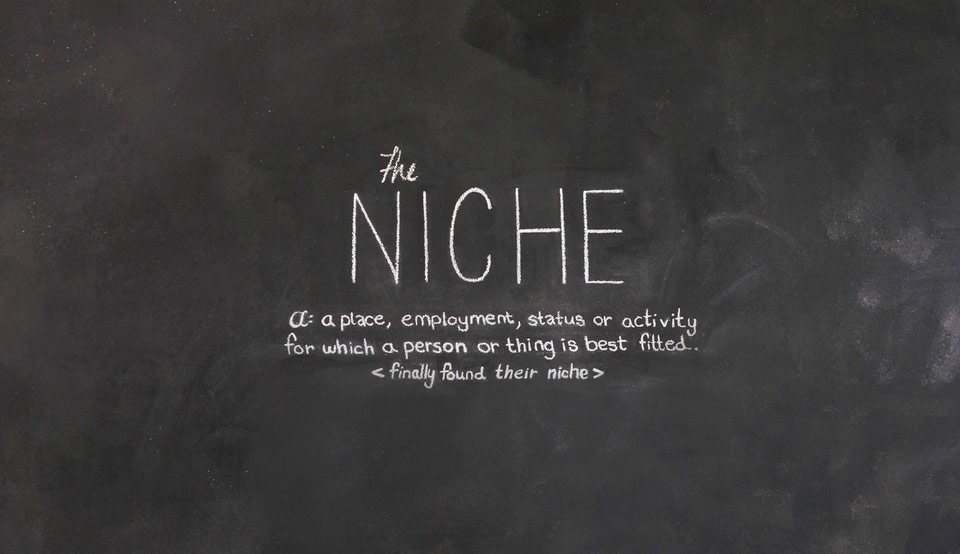 The
NICHE
a: a place, employment, status or activity
for which a person or thing is best fitted..
< finally found their niche >